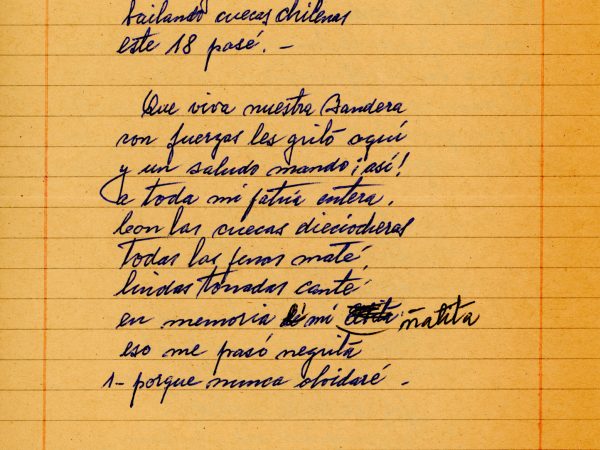 bailando cuecas chilenas
este 18 pasé. -
Que viva nuestra Bandera
con fuerzas les gritó aquí
y un saludo mando ¡así!
a toda mi patria entera.
Con las cuecas dieciocheras
todas las penas maté
lindas tonadas canté
en memoria di mi ñatita
eso me pasó negrita
1- porque nunca olvidaré -